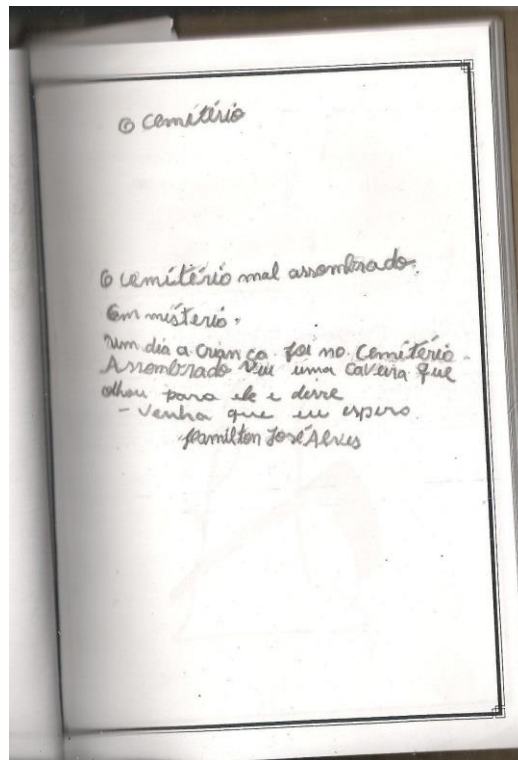 O cemitério
O cemitério mal assombrado.
Em mistério.
Num dia a criança foi no Cemitério
Assombrado Viu uma caveira que
olhou para ele e disse
- Venha que eu espero.
Hamilton José Alves